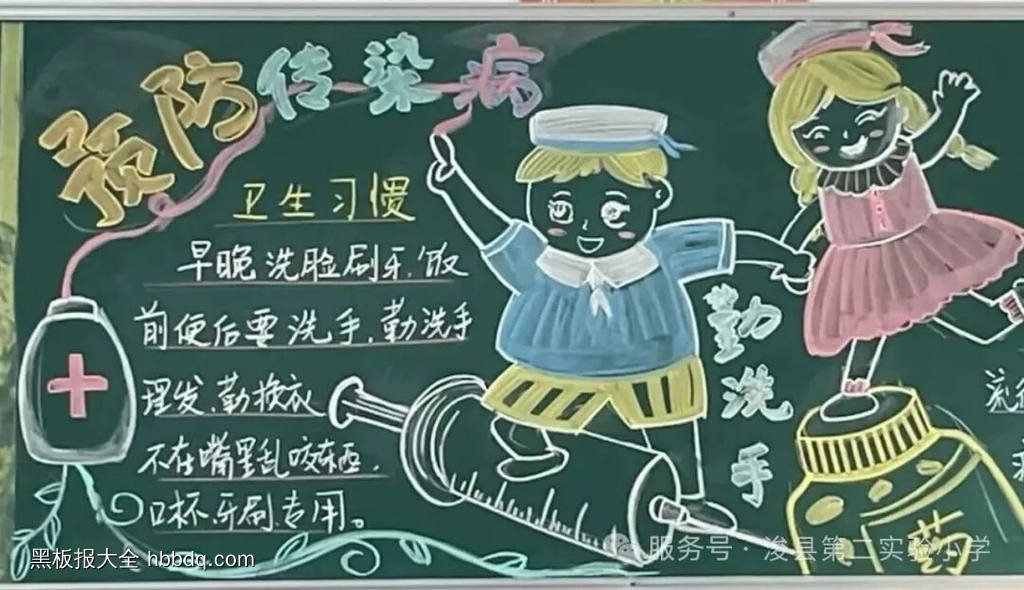 预防传染病
卫生习惯
早晚洗脸刷牙.饭
前便后要洗手.勤洗手
理发.勤换衣
不在嘴里乱咬东西.
口杯.牙刷.专用。
勤洗手
药
黑板报大全 hbbdq.com
服务号·浚县第二实验小学